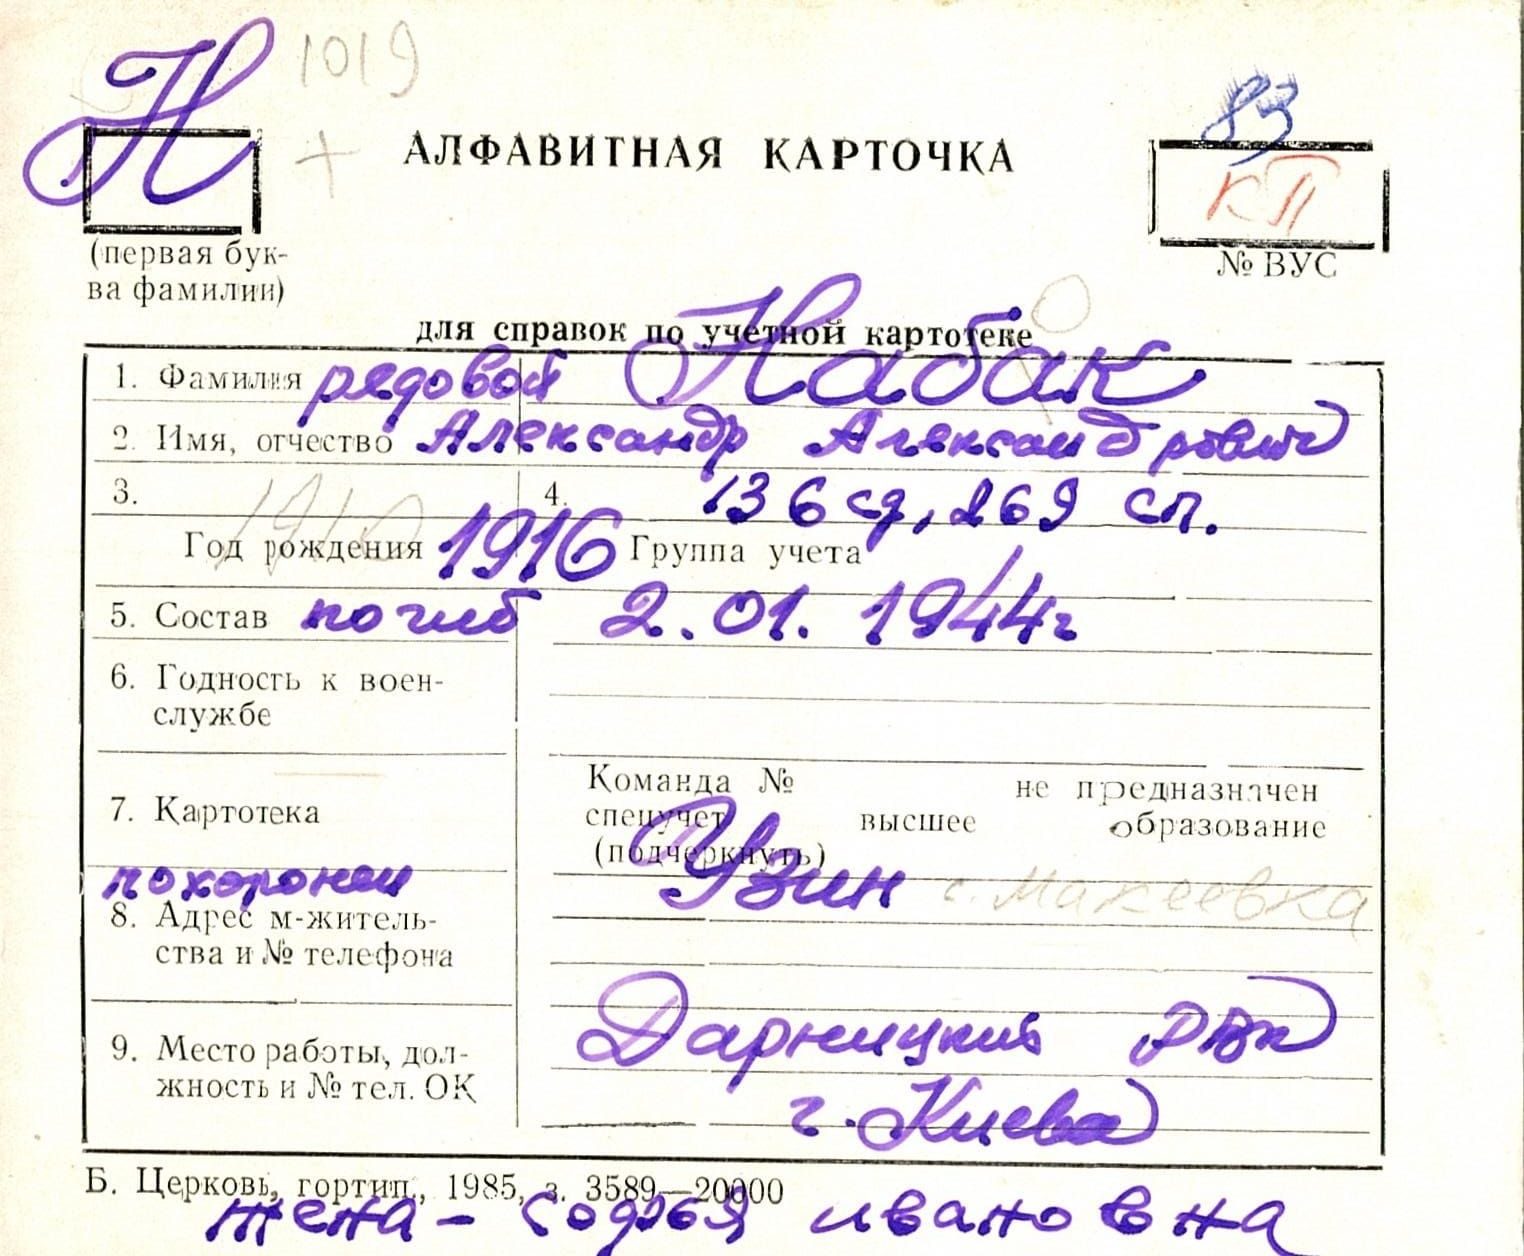 Н 1019
83
+ АЛФАВИТНАЯ КАРТОЧКА
КП
(первая бук-
ва фамилии)
№ ВУС
для справок по учетной картотеке
1. Фамилия рядовой Набак
2. Имя, отчество Александр Александрович
3. 4. 136 сд, 269 сп.
1910
Год рождения 1916 Группа учета
5. Состав погиб 2.01.1944г
6. Годность к воен-
службе
Команда № не предназначен
7. Картотека спецучет высшее образование
(подчеркнуть)
похоронен Узин с. Макеевка
8. Адрес м-житель-
ства и № телефона
Дарницкий РВК
9. Место работы, дол-
жность и № тел. ОК
г. Киева
Б. Церковь, гортип., 1985, з. 3589—20000
жена - Софья Ивановна